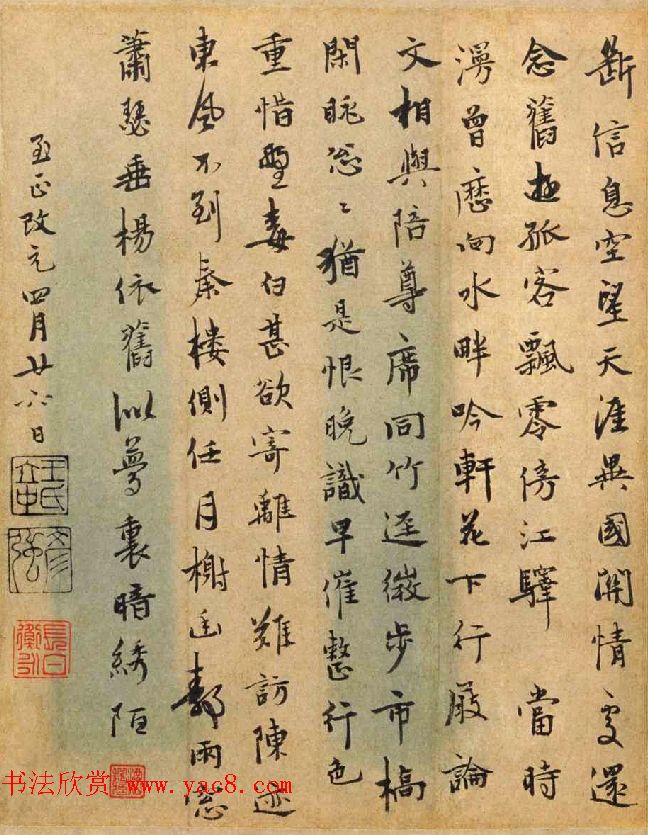 斷信息空望天涯異國關情還
念舊孤客飄零傍江驛 當時
漫曾歷向水畔吟軒花下行論
文相與陪尊席同竹逕微步市橋
閑眺忩〻猶是恨晚識早催整行色
重惜白甚欲寄離情難訪陳迹
東風不到秦樓側任月榭雨窓
蕭瑟垂楊依舊似夢裏暗綉陌
至正改元四月廿六日
王氏立中
彥強
书法欣赏 www.yac8.com